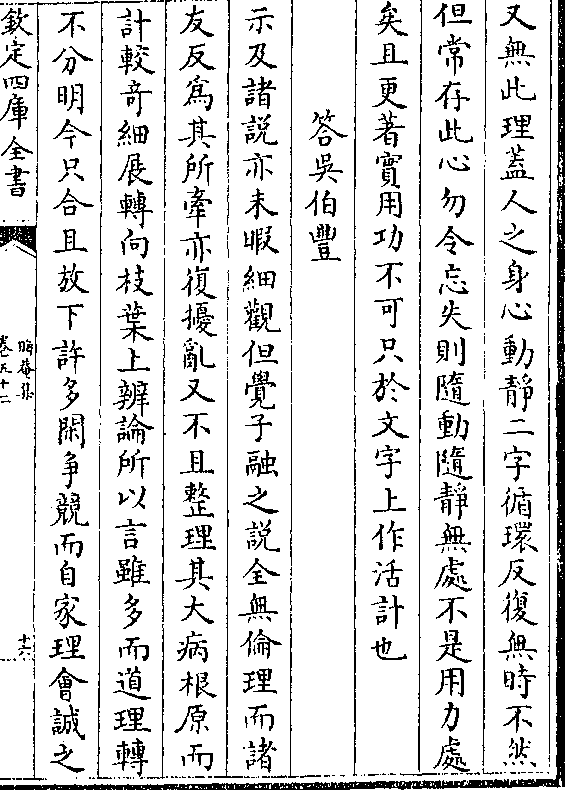 又無此理蓋人之身心動靜二字循環反復無時不然
但常存此心勿令忘失則隨動隨靜無處不是用力處
矣且更著實用功不可只於文字上作活計也
答吳伯豐
示及諸説亦未暇細觀但覺子融之説全無倫理而諸
友反爲其所牽亦復擾亂又不且整理其大病根原而
計較竒細展轉向枝葉上辨論所以言雖多而道理轉
不分明今只合且放下許多閑爭競而自家理會誠之
欽定四庫全書
晦菴集
卷五十二
十六